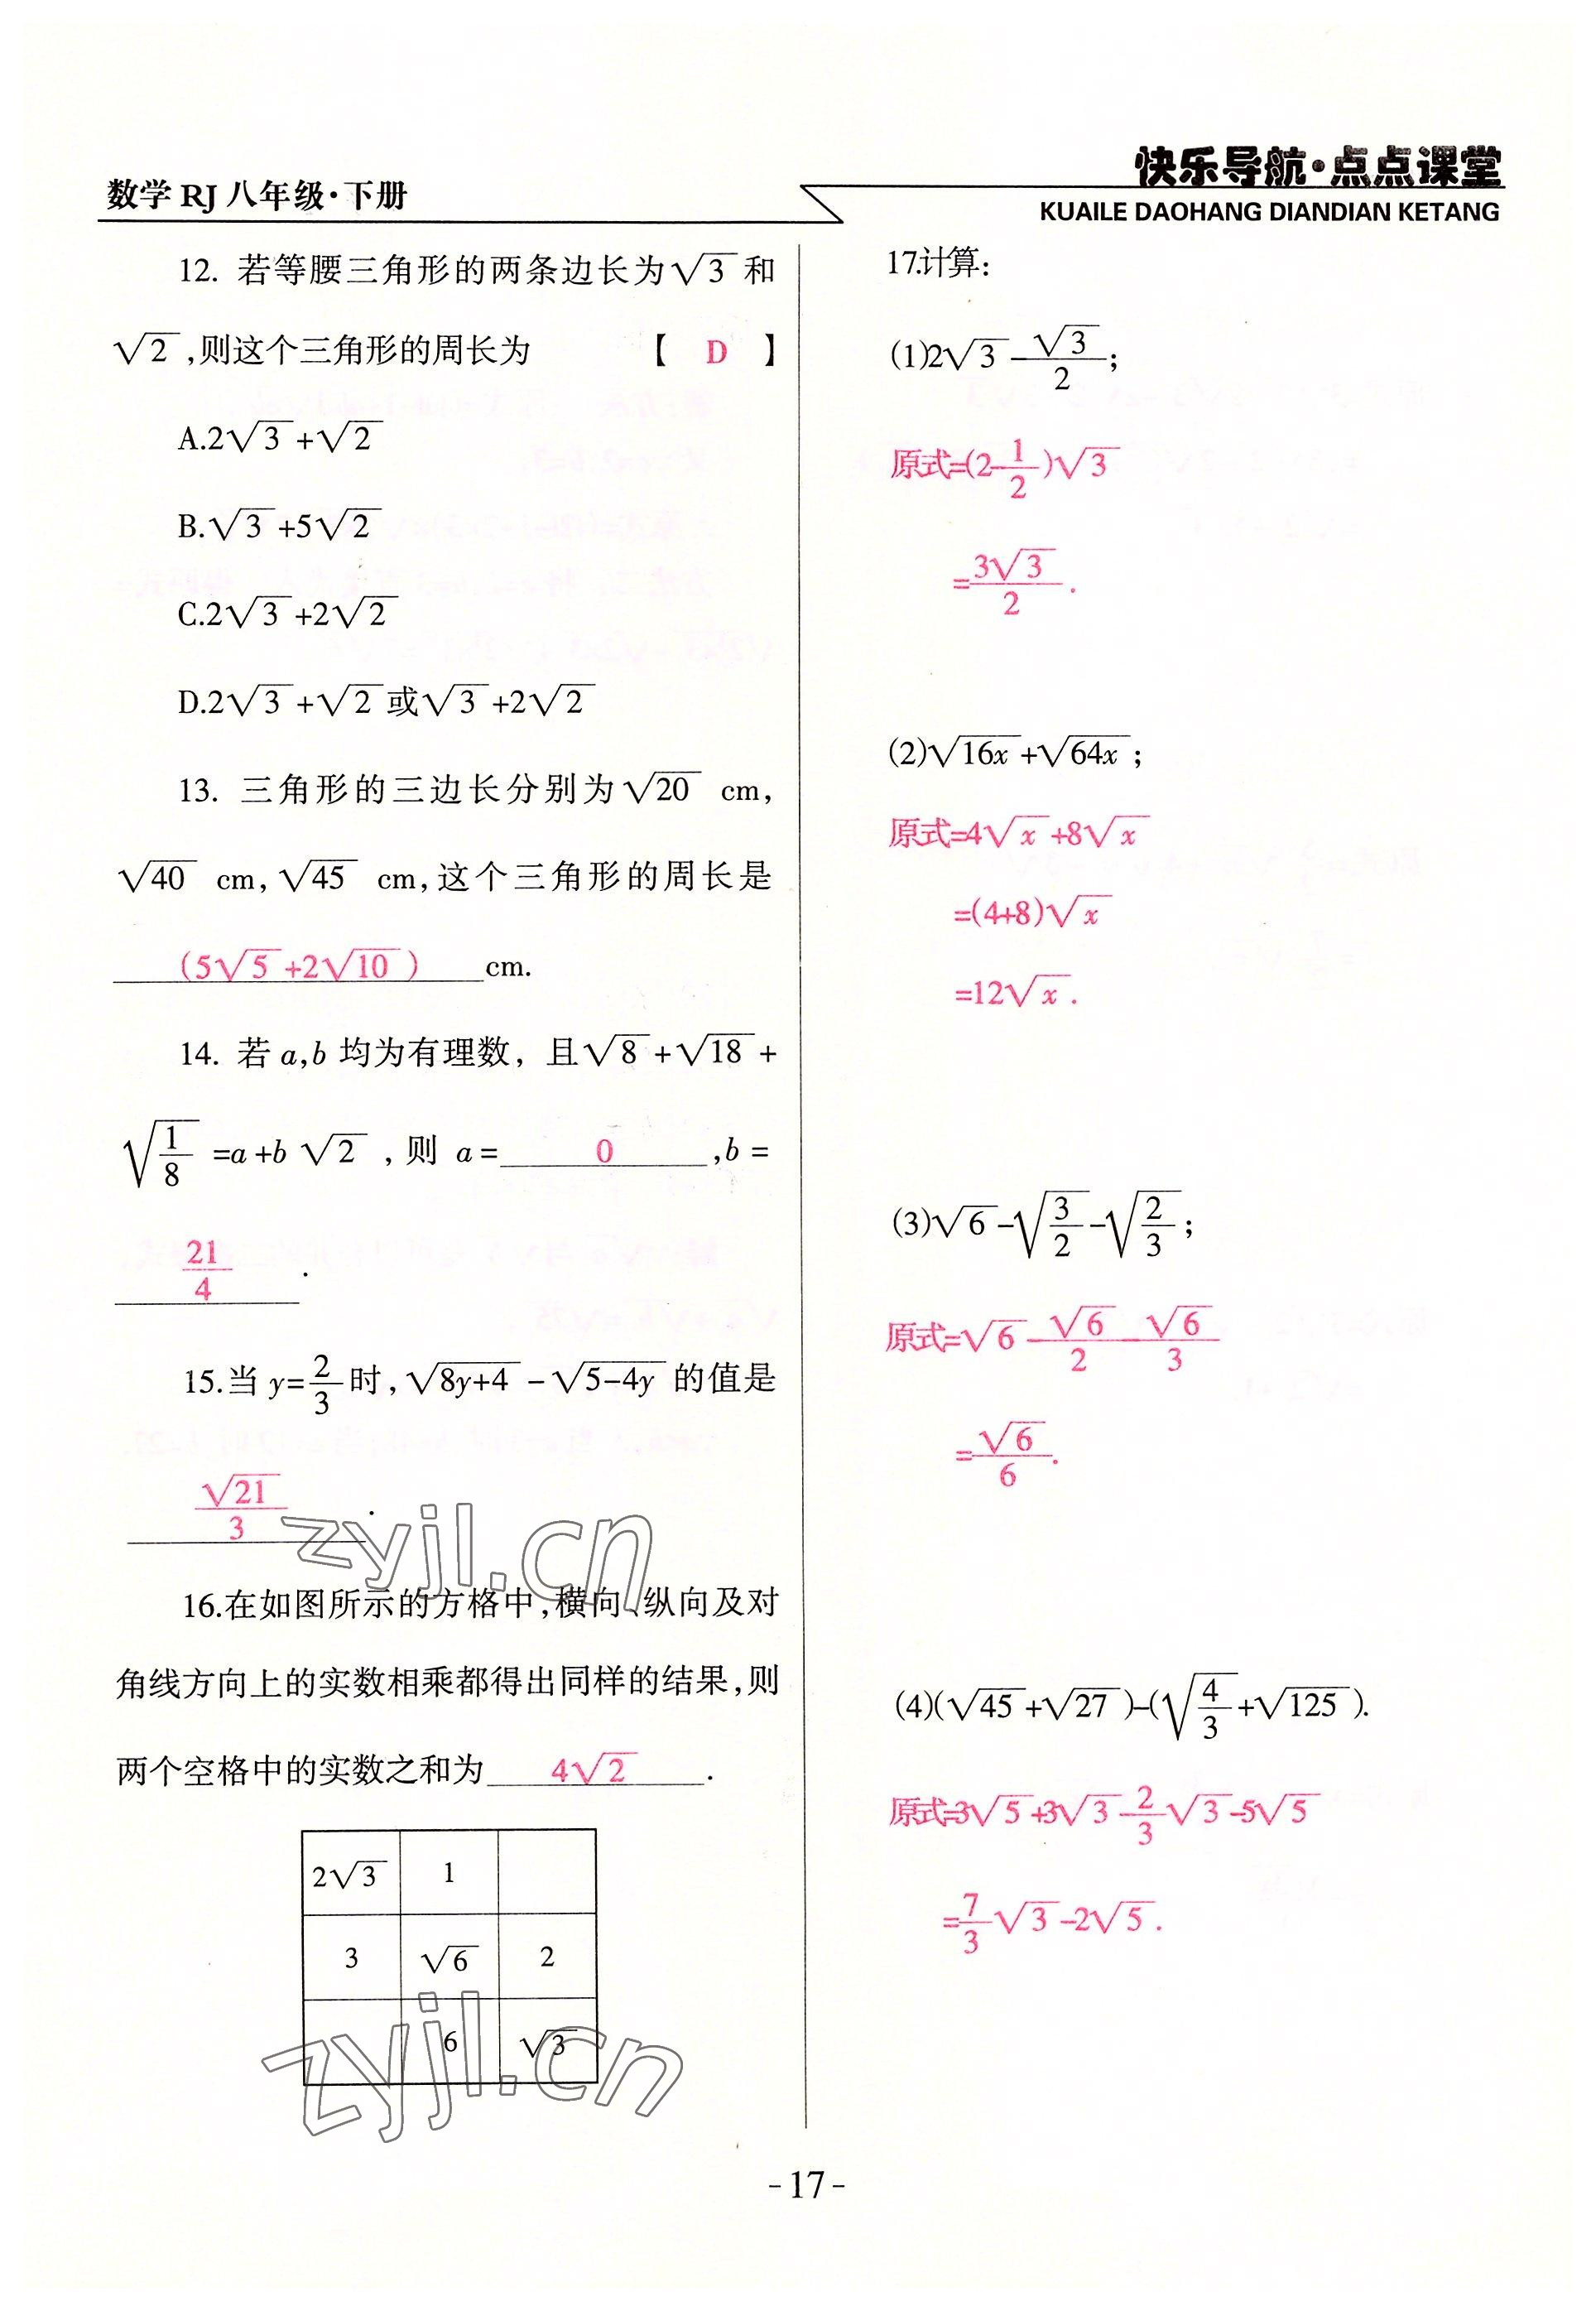 数学 RJ 八年级·下册
快乐导航·点点课堂
KUAILE DAOHANG DIANDIAN KETANG
12. 若等腰三角形的两条边长为√3 和
√2 ,则这个三角形的周长为 【 D 】
A.2√3 +√2
B.√3 +5√2
C.2√3 +2√2
D.2√3 +√2 或√3 +2√2
13. 三角形的三边长分别为√20 cm,
√40 cm, √45 cm,这个三角形的周长是
(5√5 +2√10 ) cm.
14. 若 a,b 均为有理数, 且√8 +√18 +
√(1/8) =a+b √2 , 则 a= 0 ,b =
21/4 .
15.当 y=2/3时,√(8y+4) -√(5-4y) 的值是
√21/3 .
16.在如图所示的方格中,横向、纵向及对
角线方向上的实数相乘都得出同样的结果,则
两个空格中的实数之和为 4√2 .
2√3 1
3 √6 2
6 √3
17.计算:
(1)2√3 -√3/2;
原式=(2-1/2)√3
=3√3/2.
(2)√16x +√64x ;
原式=4√x +8√x
=(4+8)√x
=12√x .
(3)√6 -√(3/2)-√(2/3);
原式=√6 -√6/2-√6/3
=√6/6.
(4)(√45 +√27 )-(√(4/3)+√125 ).
原式=3√5 +3√3 -2/3√3 -5√5
=7/3√3 -2√5 .
zyjl.cn
zyjl.cn
-17-